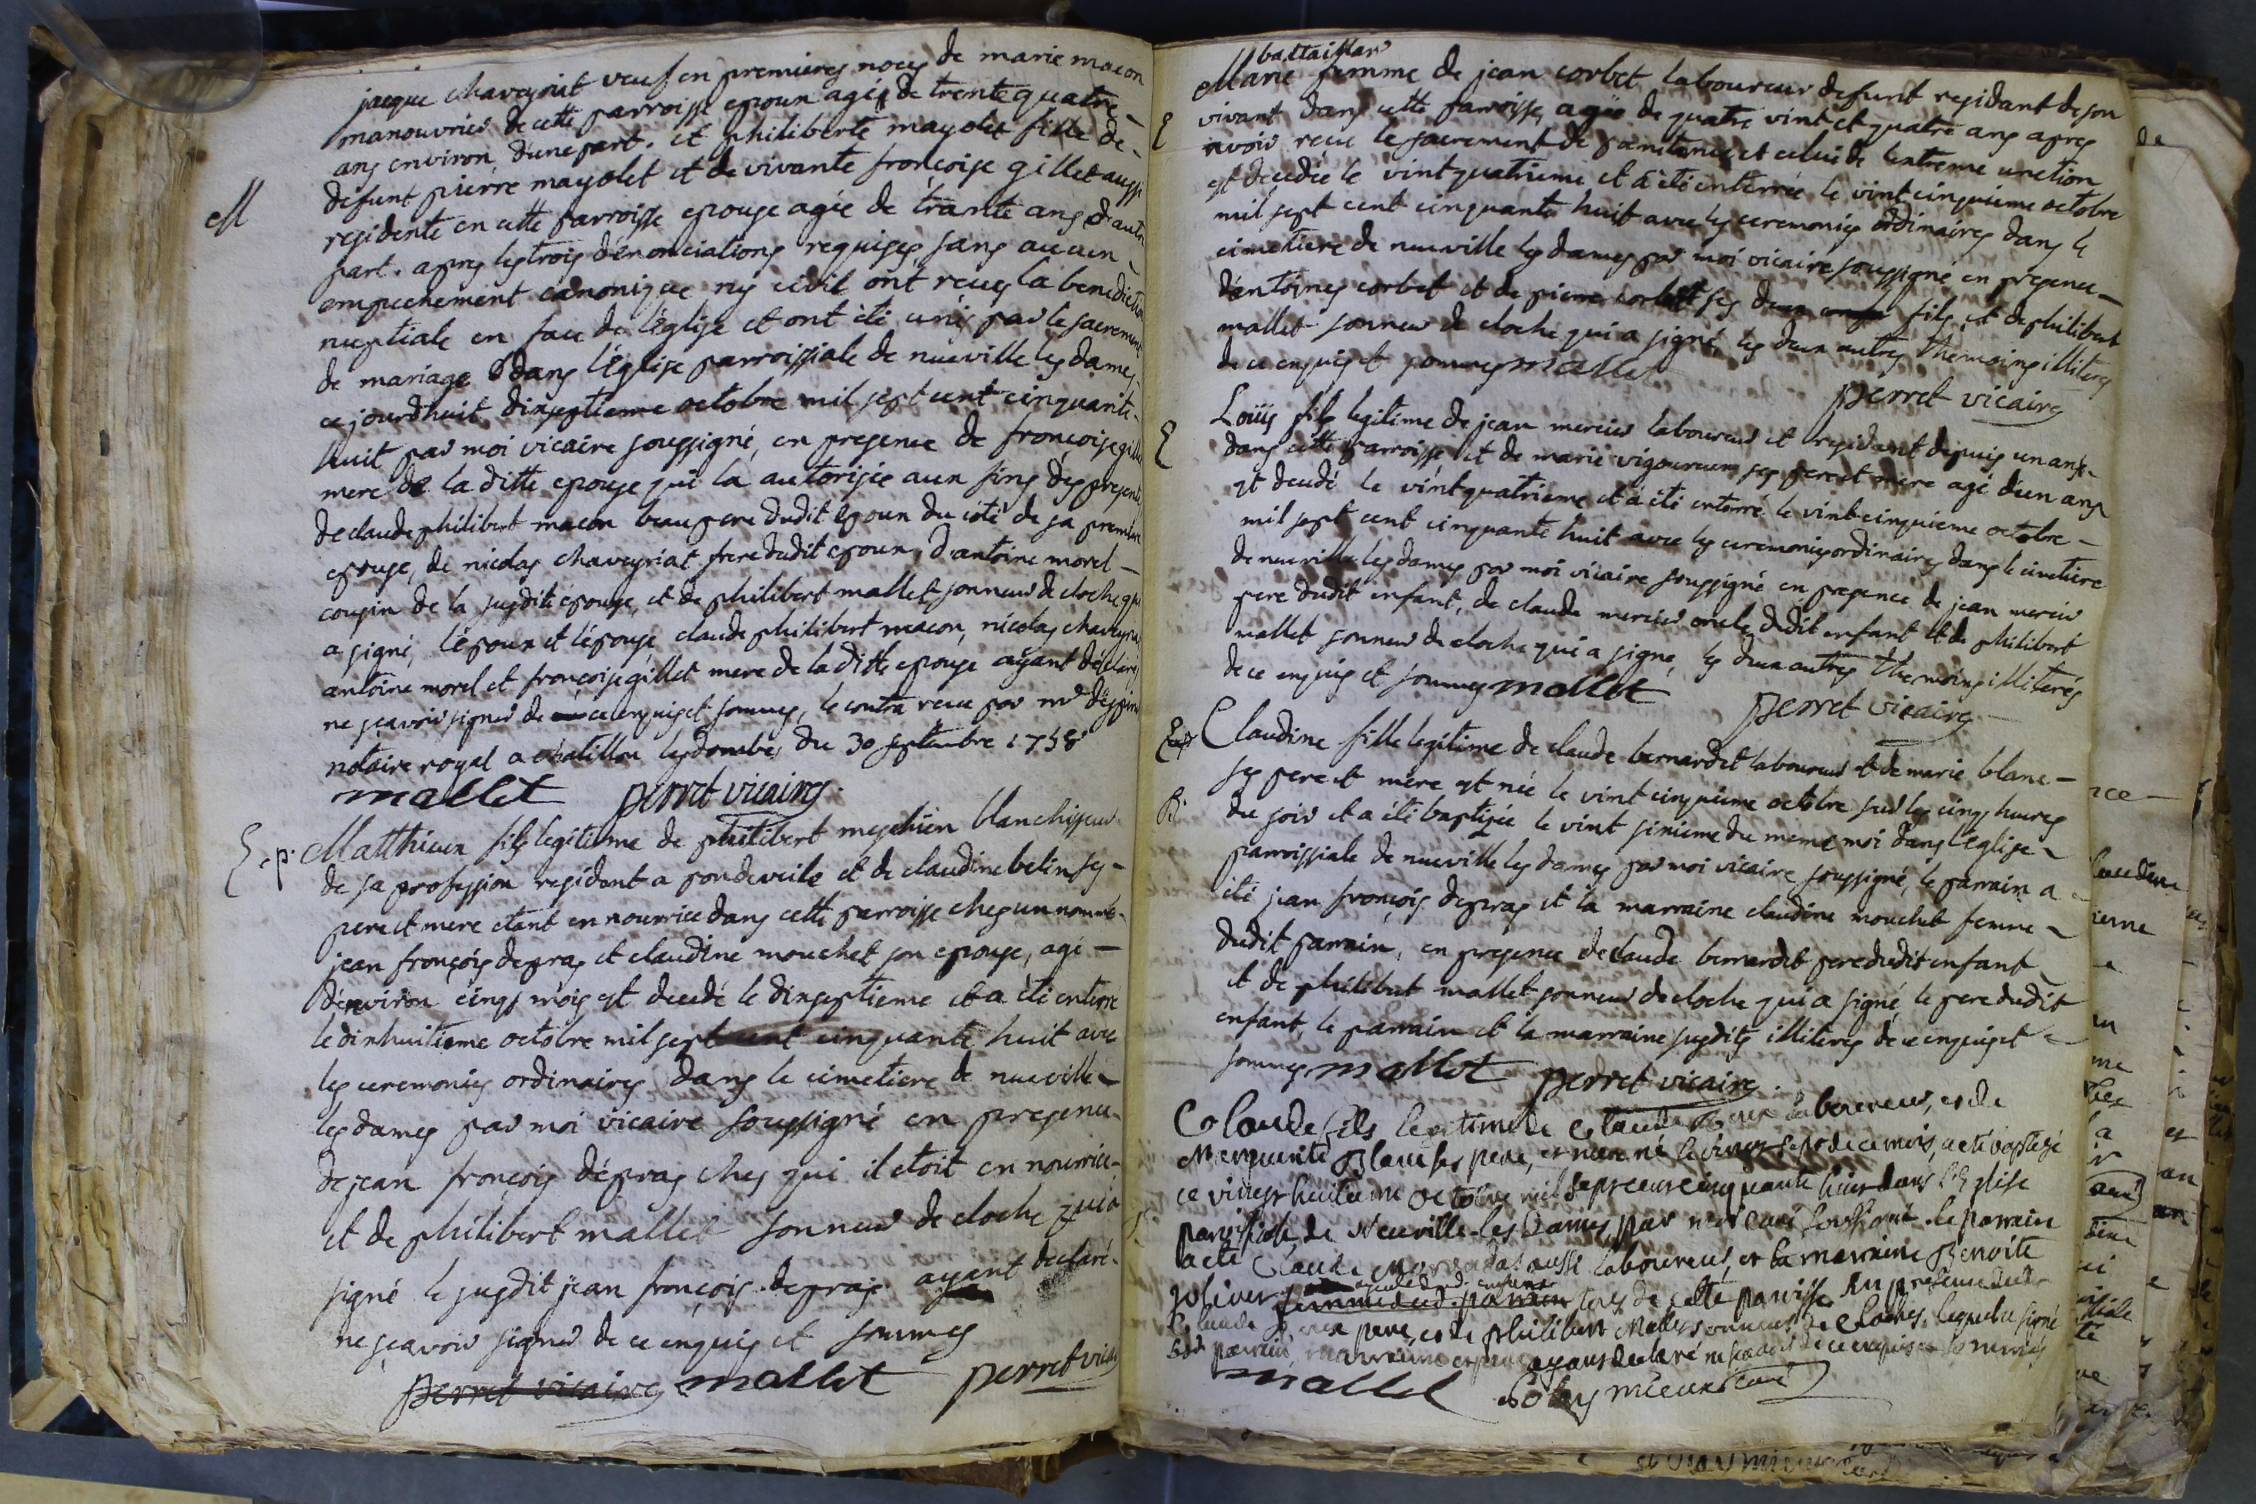 jacque chaveyriat veuf en premieres noces de marie macon
manouvrier de cette parroisse epoux agé de trente quatre
ans environ d'une part. et philiberte mayolet fille de -
M
defunt pierre mayolet et de vivante françoise gillet aussi
residente en cette parroisse epouse agée de trante ans d'autre
part. apres les trois denonciations requises, sans aucun
empechement canonique ny civil ont recus la benediction
nuptiale en face de l'église et ont été unis par le sacrement
de mariage dans l'église parroissiale de nueville les dames
ce jourd'huit dixseptieme octobre mil sept cent cinquante-
huit par moi vicaire soussigné, en presence de françoise gillet
mere de la ditte epouse qui la autorisée aux fins des presentes
de claude philibert macon beaupere dudit epoux du côté de sa premiere
epouse, de nicolas chaveyriat frere dudit epoux, d'antoine morel -
cousin de la susdite epouse, et de philibert mallet sonneur de cloche qui
a signé, l'époux et l'épouse claude philibert macon, nicolas chaveyriat
antoine morel et françoise gillet mere de la ditte epouse ayant déclarés
ne sçavoir signer de ce enquis et sommes, le contra recu par mr
notaire royal a chatillon les dombes du 30 septembre 1758
mallet perret vicaire.
E .p. Matthieu fils legitime de philibert meschien blanchisseur
de sa profession resident a pondeveile et de claudine belin ses -
pere et mere etant en nourrice dans cette parroisse ches un nommé
jean françois depras et claudine mouchet son epouse, agé -
d'environ cinqs mois est decedé le dixseptieme et a été enterré
le dixhuitieme octobre mil sept cent cinquante huit avec
les ceremonies ordinaires dans le cimetiere de nueville
les dames par moi vicaire soussigné en presence
de jean françois dépras ches qui il etoit en nourrice
et de philibert mallet sonneur de cloche qui a
signé le susdit jean françois depras ayant declaré
ne sçavoir signer de ce enquis et sommes
perret vicaire mallet perret vicaire
battaillar
Marie femme de jean corbet laboureur defunt residant de son
E vivant dans cette parroisse, agée de quatre vint et quatre ans apres
avoir recue le sacrement de penitence et celui de l'extreme unction
est decedée le vintquatrieme et a été enterrée le vint cinquieme octobre
mil sept cent cinquante huit avec les ceremonies ordinaires dans le
cimetiere de nueville les dames par moi vicaire soussigné en presence
d'entoines corbet et de pierre corbet ses deux fils, et de philibert
mallet sonneur de cloche qui a signé, les deux autres themoins illiterés
de ce enquis et sommes mallet
perret vicaire
Loüis fils legitime de jean mercier laboureur et residant depuis un ans
E dans cette parroisse et de marie vigoureux ses pere et mere agé d'un ans
est decedé le vintquatrieme et a été enterré le vint-cinquieme octobre -
mil sept cent cinquante huit avec les ceremonies ordinaires dans le cimetiere
de nueville les dames par moi vicaire soussigné en presence de jean mercier
pere dudit enfant, de claude mercier oncle dudit enfant et de philibert
mallet sonneur de cloche qui a signé, les deux autres themoins illiterés
de ce enquis et sommes mallet
perret vicaire
Claudine fille legitime de claude bernardet laboureur et de marie blanc -
ses pere et mere est née le vint cinquieme octobre sur les cinqs heures
B. du soir et a été baptisée le vint sixieme du meme moi dans l'église
parroissiale de nueville les dames par moi vicaire soussigné, le parrain a
été jean françois depras et la marraine claudine mouchet femme
dudit parrain, en presence de claude bernardet pere dudit enfant
et de philibert mallet sonneur de cloche qui a signé, le pere dudit
enfant, le parrain et la marraine susdits illiterés de ce enquis et
sommes mallet perret vicaire.
Claude fils legitime de Claude laboureur, et de
Marguerite Blanc ses pere, et mere né le vingt sept de ce mois, a eté baptisé
ce vingt huitieme octobre mil sept cent cinquante huit dans l'Eglise
paroissiale de Neuville-les Dames par moi curé soussigné. le parrain
a eté Claude aussi laboureur, et la marraine Benoite
joliver femme dud. parrain tous de cette paroisse. En presence dudt
Claude pere, et de philibert Mallet sonneur de cloches, lequel a signé
parrain, marraine et pere ayant declaré ne sçavoir de ce enquis et sommés
mallet curé